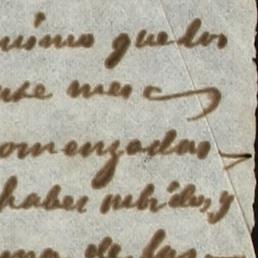 mismo que los
este mes
comenzadas
haber subido, y
una de las